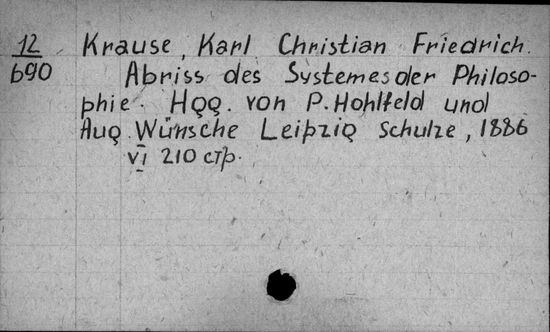 12 Krause, Karl Christian Friedrich.
690 Abriss des Systemes der Philoso-
phie. Hgg. von P. Hohlfeld und
Aug. Wünsche Leipzig Schulze, 1886
VI 210 стр.